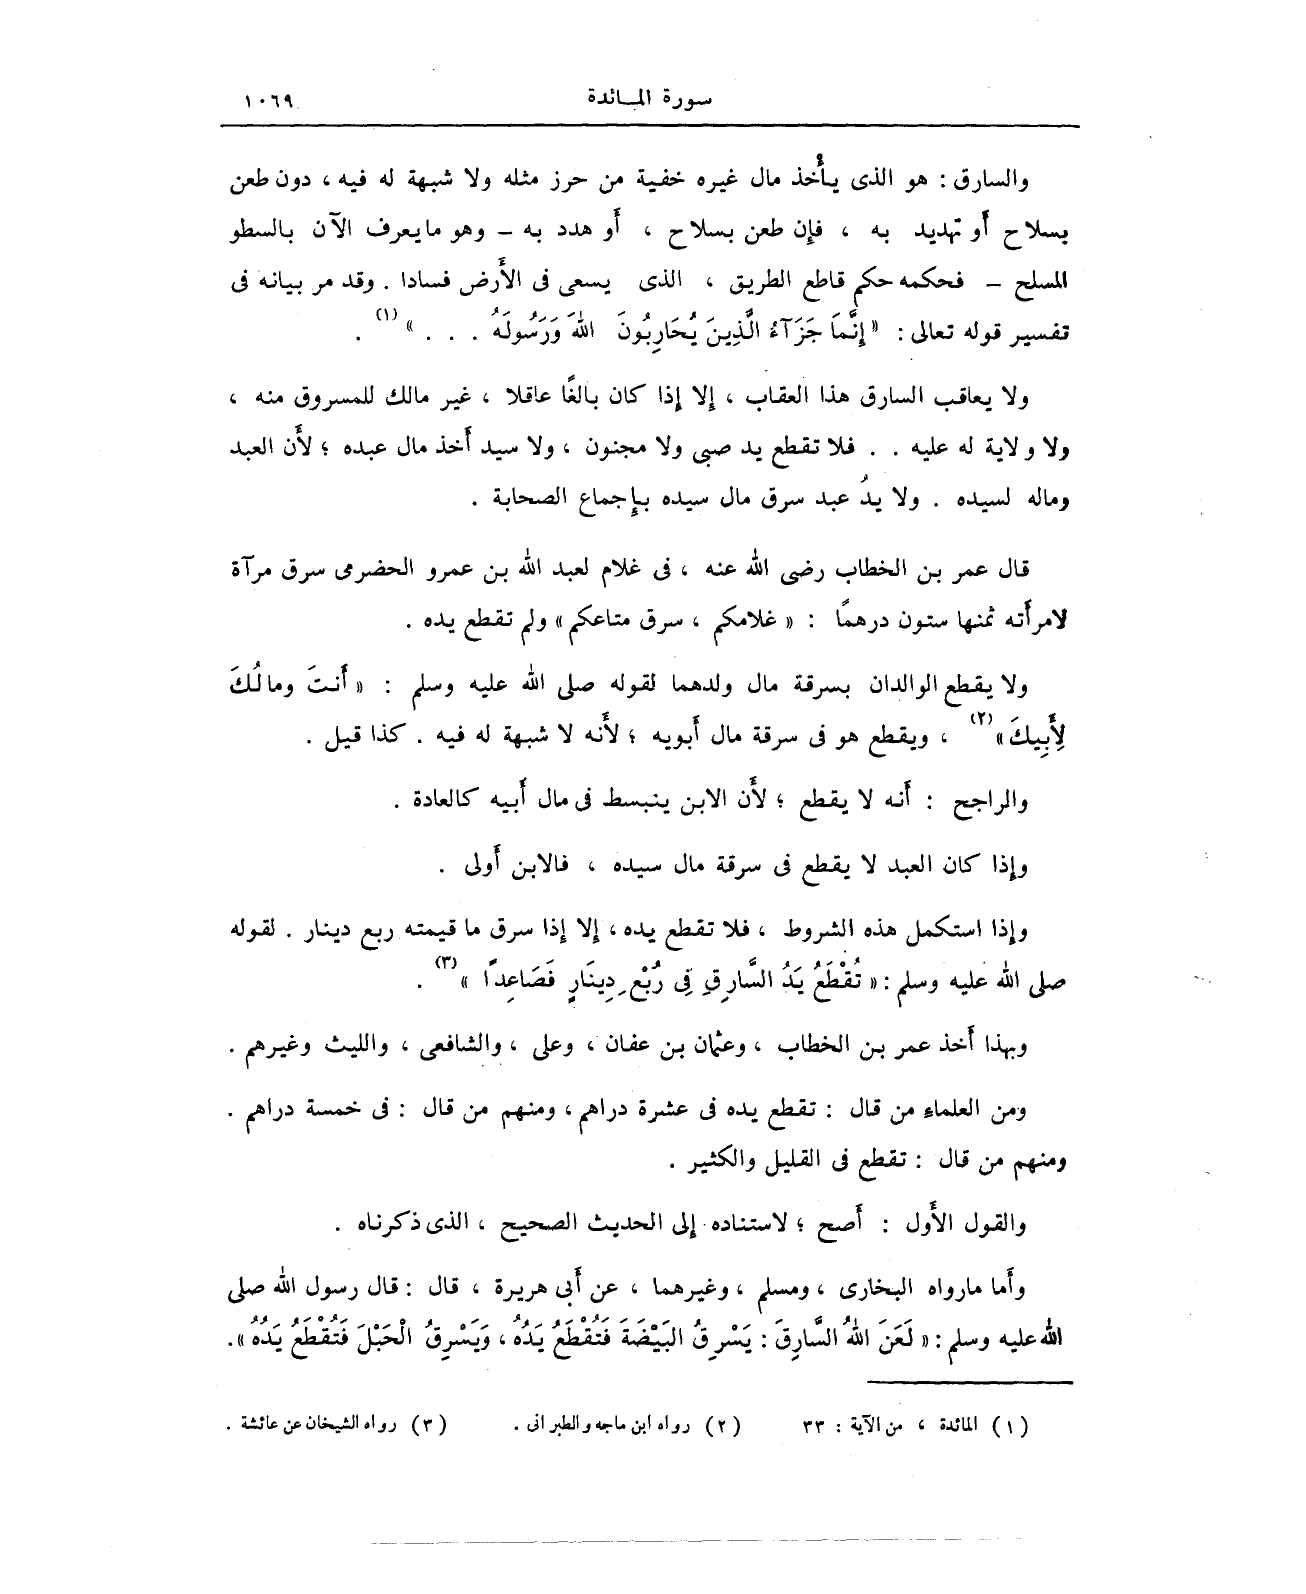 سورة المائدة ١٠٦٩
والسارق : هو الذى يأخذ مال غيره خفية من حرز مثله ولا شبهة له فيه ، دون طعن
بسلاح أو تهديد به ، فإن طعن بسلاح ، أو هدد به – وهو ما يعرف الآن بالسطو
المسلح – فحكمه حكم قاطع الطريق ، الذى يسعى فى الأرض فسادا . وقد مر بيانه فى
تفسير قوله تعالى : « إِنَّمَا جَزَآءُ الَّذِينَ يُحَارِبُونَ اللهَ وَرَسُولَهُ . . . » (١) .
ولا يعاقب السارق هذا العقاب ، إلا إذا كان بالغًا عاقلا ، غير مالك للمسروق منه ،
ولا ولاية له عليه . . فلا تقطع يد صبى ولا مجنون ، ولا سيد أخذ مال عبده ؛ لأن العبد
وماله لسيده . ولا يدُ عبد سرق مال سيده بإجماع الصحابة .
قال عمر بن الخطاب رضى الله عنه ، فى غلام لعبد الله بن عمرو الحضرمى سرق مرآة
لامرأته ثمنها ستون درهمًا : « غلامكم ، سرق متاعكم » ولم تقطع يده .
ولا يقطع الوالدان بسرقة مال ولدهما لقوله صلى الله عليه وسلم : « أَنتَ ومالُكَ
لِأَبِيكَ » (٢) ، ويقطع هو فى سرقة مال أبويه ؛ لأنه لا شبهة له فيه . كذا قيل .
والراجح : أنه لا يقطع ؛ لأن الابن ينبسط فى مال أبيه كالعادة .
وإذا كان العبد لا يقطع فى سرقة مال سيده ، فالابن أولى .
وإذا استكمل هذه الشروط ، فلا تقطع يده ، إلا إذا سرق ما قيمته ربع دينار . لقوله
صلى الله عليه وسلم : « تُقْطَعُ يَدُ السَّارِقِ فِى رُبْعِ دِينَارٍ فَصَاعِدًا » (٣) .
وبهذا أخذ عمر بن الخطاب ، وعثمان بن عفان ، وعلى ، والشافعى ، والليث وغيرهم .
ومن العلماء من قال : تقطع يده فى عشرة دراهم ، ومنهم من قال : فى خمسة دراهم .
ومنهم من قال : تقطع فى القليل والكثير .
والقول الأول : أصح ؛ لاستناده إلى الحديث الصحيح ، الذى ذكرناه .
وأما مارواه البخارى ، ومسلم ، وغيرهما ، عن أبى هريرة ، قال : قال رسول الله صلى
الله عليه وسلم : « لَعَنَ اللهُ السَّارِقَ : يَسْرِقُ البَيْضَةَ فَتُقْطَعُ يَدُهُ ، وَيَسْرِقُ الْحَبْلَ فَتُقْطَعُ يَدُهُ » .
(١) المائدة ، من الآية : ٣٣ (٢) رواه ابن ماجه والطبرانى . (٣) رواه الشيخان عن عائشة .